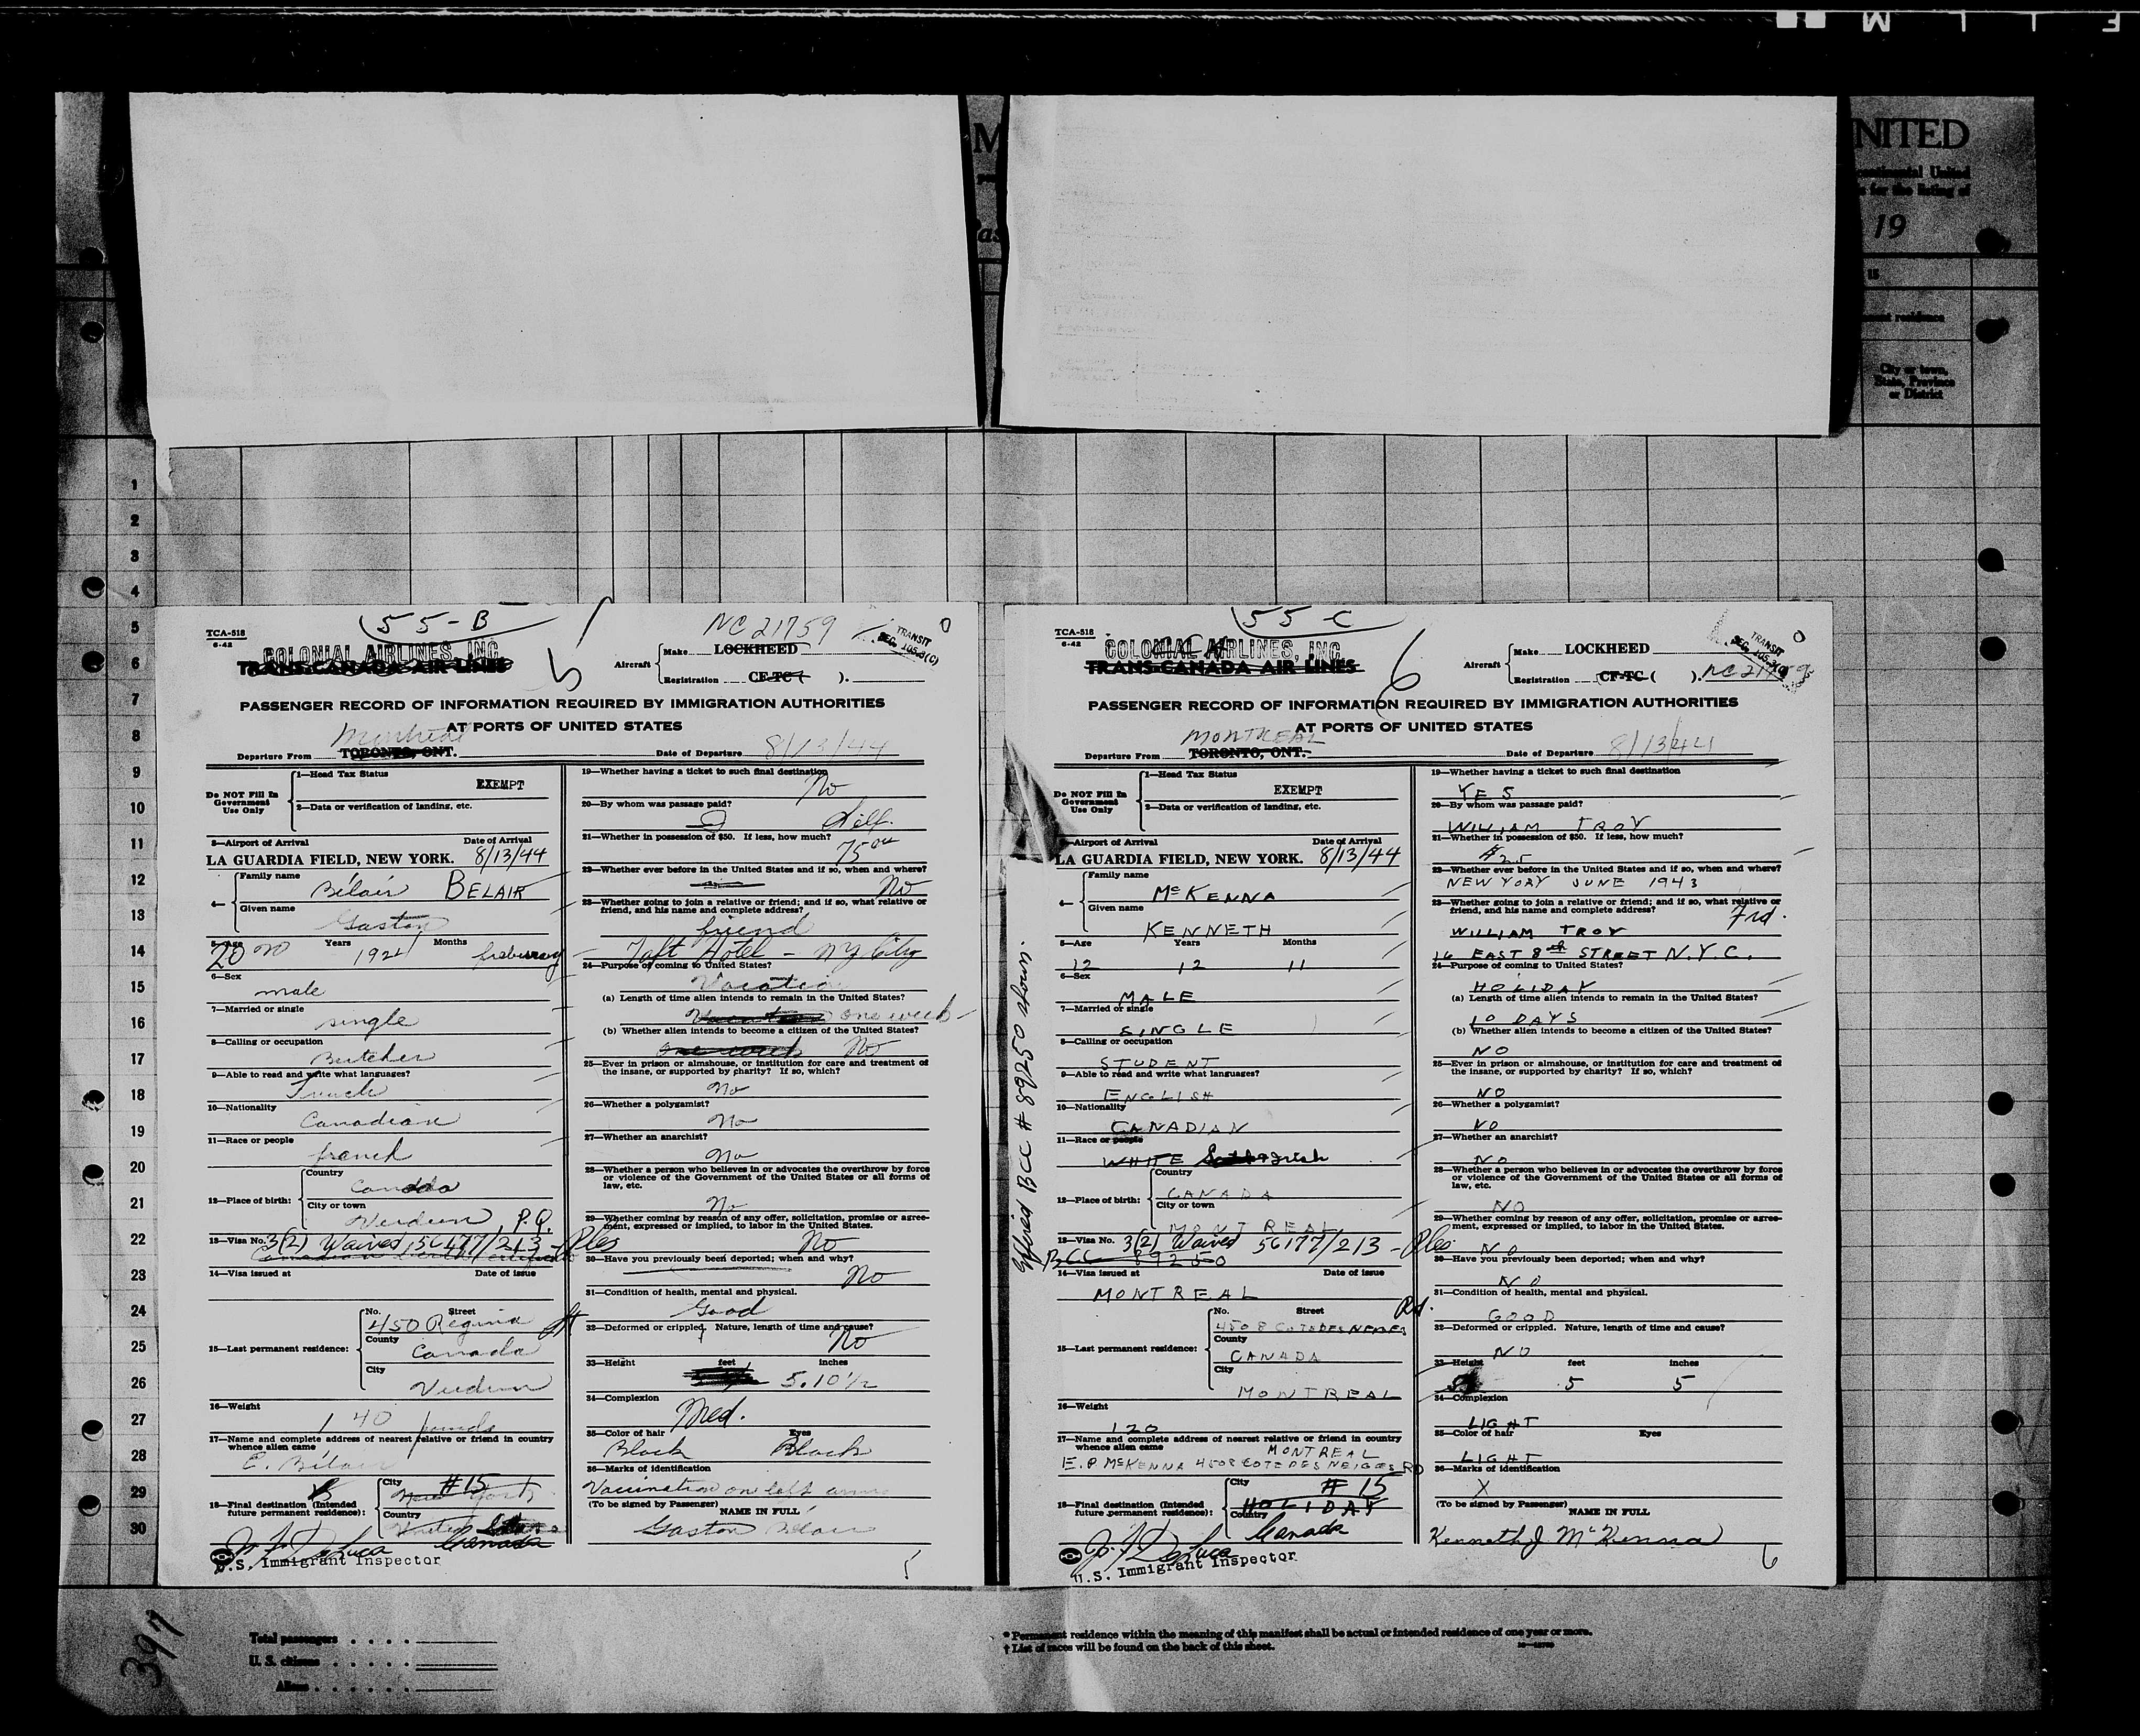 F I L M
NITED
ontinental United
s for the listing of
19
15
ent residence
City or town,
State, Province
or District
1
2
3
4
5
6
7
8
9
10
11
12
13
14
15
16
17
18
19
20
21
22
23
24
25
26
27
28
29
30
55-B
NC 21759
TCA-518
6-42
COLONIAL AIRLINES, INC
TRANS-CANADA AIR LINES
5
Aircraft
Make LOCKHEED
Registration CF-TC ( ).
TRANSIT
SEC. 105.3(C)
PASSENGER RECORD OF INFORMATION REQUIRED BY IMMIGRATION AUTHORITIES
AT PORTS OF UNITED STATES
Montreal
Departure From TORONTO, ONT. Date of Departure 8/13/44
Do NOT Fill In
Government
Use Only
1—Head Tax Status
EXEMPT
2—Data or verification of landing, etc.
3—Airport of Arrival Date of Arrival
LA GUARDIA FIELD, NEW YORK. 8/13/44
4— Family name
Bélair BELAIR
Given name
Gaston
5—Age Years Months
20 1924
6—Sex
male
7—Married or single
single
8—Calling or occupation
Butcher
9—Able to read and write what languages?
French
10—Nationality
Canadian
11—Race or people
french
12—Place of birth: Country
Canada
City or town
Verdun, P.Q.
13—Visa No. 3(2) Waived 56177/213
14—Visa issued at Date of issue
15—Last permanent residence: No. Street
450 Regina St
County
Canada
City
Verdun
16—Weight
140 pounds
17—Name and complete address of nearest relative or friend in country
whence alien came
E. Bélair
18—Final destination (Intended
future permanent residence): City
New York #15
Country
United States
Canada
U.S. Immigrant Inspector
19—Whether having a ticket to such final destination
No
20—By whom was passage paid?
Self.
21—Whether in possession of $50. If less, how much?
75.00
22—Whether ever before in the United States and if so, when and where?
No
23—Whether going to join a relative or friend; and if so, what relative or
friend, and his name and complete address?
friend
Taft Hotel - NY City
24—Purpose of coming to United States?
Vacation
(a) Length of time alien intends to remain in the United States?
one week
(b) Whether alien intends to become a citizen of the United States?
one week No
25—Ever in prison or almshouse, or institution for care and treatment of
the insane, or supported by charity? If so, which?
No
26—Whether a polygamist?
No
27—Whether an anarchist?
No
28—Whether a person who believes in or advocates the overthrow by force
or violence of the Government of the United States or all forms of
law, etc.
No
29—Whether coming by reason of any offer, solicitation, promise or agree-
ment, expressed or implied, to labor in the United States.
No
30—Have you previously been deported; when and why?
No
31—Condition of health, mental and physical.
Good
32—Deformed or crippled. Nature, length of time and cause?
No
33—Height feet inches
5.10 1/2
34—Complexion
Med.
35—Color of hair Eyes
Black Black
36—Marks of identification
Vaccination on left arm
(To be signed by Passenger)
NAME IN FULL
Gaston Bélair
5
55 C
TCA-518
6-42
COLONIAL AIRLINES, INC
TRANS-CANADA AIR LINES
6
Aircraft
Make LOCKHEED
Registration CF-TC ( ). NC 21759
TRANSIT
SEC. 105.3(C)
PASSENGER RECORD OF INFORMATION REQUIRED BY IMMIGRATION AUTHORITIES
AT PORTS OF UNITED STATES
MONTREAL
Departure From TORONTO, ONT. Date of Departure 8/13/44
Do NOT Fill In
Government
Use Only
1—Head Tax Status
EXEMPT
2—Data or verification of landing, etc.
3—Airport of Arrival Date of Arrival
LA GUARDIA FIELD, NEW YORK. 8/13/44
4— Family name
McKENNA
Given name
KENNETH
5—Age Years Months
12 12 11
6—Sex
MALE
7—Married or single
SINGLE
8—Calling or occupation
STUDENT
9—Able to read and write what languages?
ENGLISH
10—Nationality
CANADIAN
11—Race or people
WHITE Irish
12—Place of birth: Country
CANADA
City or town
MONTREAL
13—Visa No. 3(2) Waived 56177/213
BCC 89250
14—Visa issued at Date of issue
MONTREAL
15—Last permanent residence: No. Street
4508 COTE DES NEIGES Rd.
County
CANADA
City
MONTREAL
16—Weight
120
17—Name and complete address of nearest relative or friend in country
whence alien came MONTREAL
E. P. McKENNA 4508 COTE DES NEIGES RD
18—Final destination (Intended
future permanent residence): City
#15
HOLIDAY
Country
Canada
U.S. Immigrant Inspector
BCC # 89250 shown.
19—Whether having a ticket to such final destination
YES
20—By whom was passage paid?
WILLIAM TROY
21—Whether in possession of $50. If less, how much?
$25
22—Whether ever before in the United States and if so, when and where?
NEW YORK JUNE 1943
23—Whether going to join a relative or friend; and if so, what relative or
friend, and his name and complete address? Frd.
WILLIAM TROY
16 EAST 8th STREET N.Y.C.
24—Purpose of coming to United States?
HOLIDAY
(a) Length of time alien intends to remain in the United States?
10 DAYS
(b) Whether alien intends to become a citizen of the United States?
NO
25—Ever in prison or almshouse, or institution for care and treatment of
the insane, or supported by charity? If so, which?
NO
26—Whether a polygamist?
NO
27—Whether an anarchist?
NO
28—Whether a person who believes in or advocates the overthrow by force
or violence of the Government of the United States or all forms of
law, etc.
NO
29—Whether coming by reason of any offer, solicitation, promise or agree-
ment, expressed or implied, to labor in the United States.
NO
30—Have you previously been deported; when and why?
NO
31—Condition of health, mental and physical.
GOOD
32—Deformed or crippled. Nature, length of time and cause?
NO
33—Height feet inches
5 5
34—Complexion
LIGHT
35—Color of hair Eyes
LIGHT
36—Marks of identification
X
(To be signed by Passenger)
NAME IN FULL
Kenneth J. McKenna
6
397
Total passengers
U. S. citizens
Aliens
* Permanent residence within the meaning of this manifest shall be actual or intended residence of one year or more.
† List of races will be found on the back of this sheet.